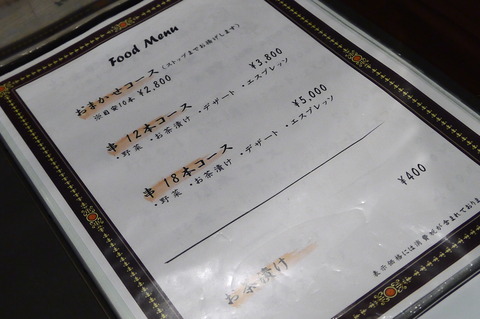 Food Menu
おまかせコース (ストップまでお揚げします)
※目安10本 ¥2,800
串 12本コース ¥3,800
・野菜 ・お茶漬け ・デザート ・エスプレッソ
串 18本コース ¥5,000
・野菜 ・お茶漬け ・デザート ・エスプレッソ
お茶漬け ¥400
表示価格には消費税が含まれております